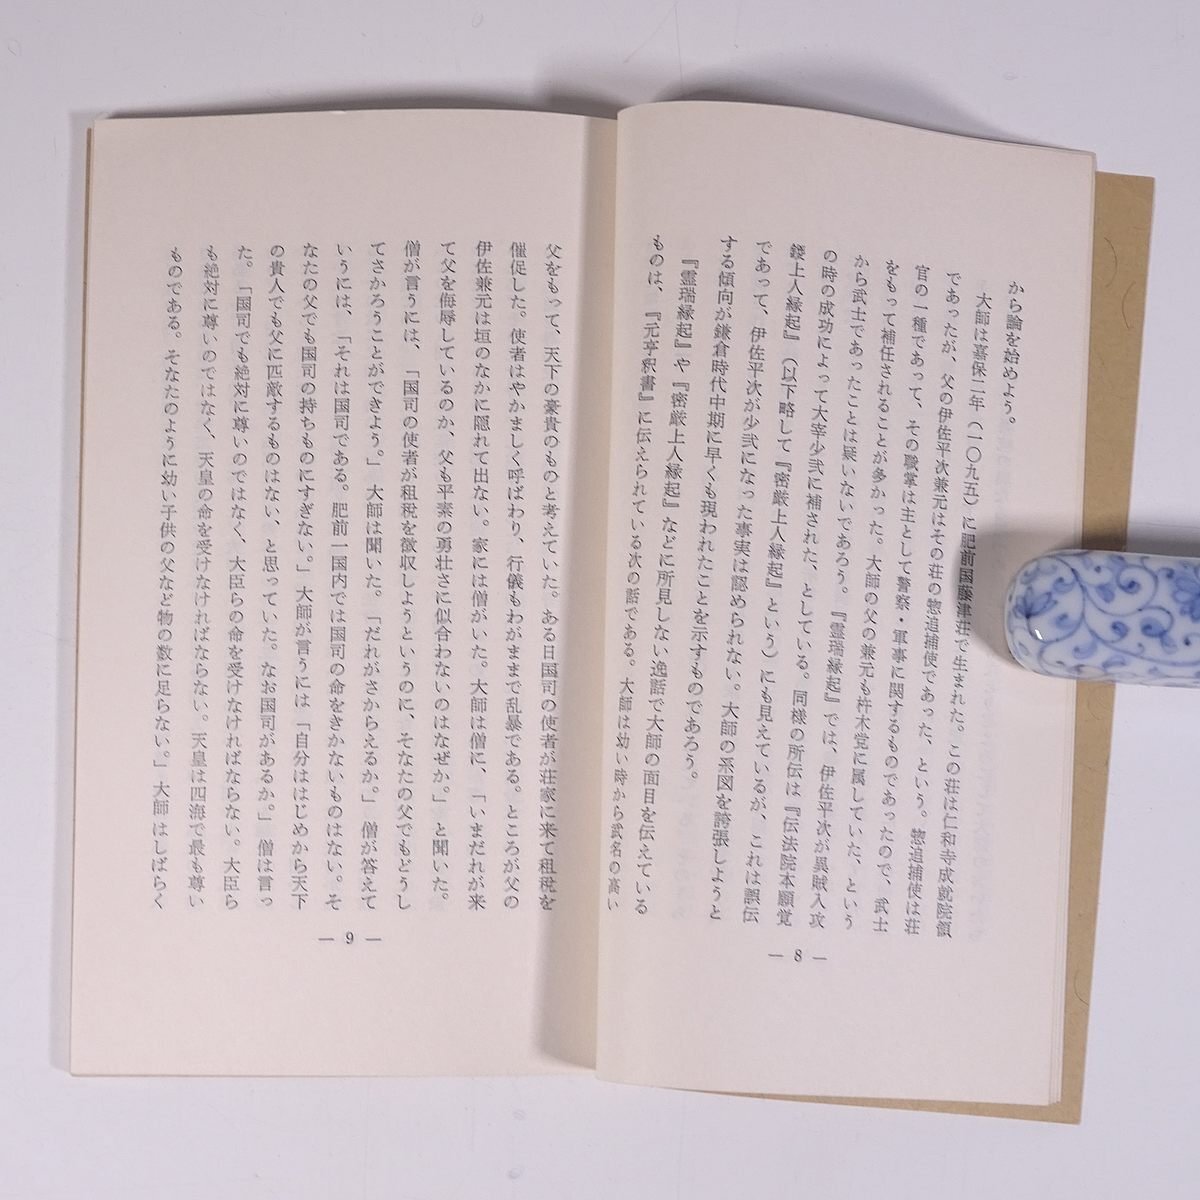 から論を始めよう。
大師は嘉保二年（一〇九五）に肥前国藤津荘で生まれた。この荘は仁和寺成就院領
であったが、父の伊佐平次兼元はその荘の惣追捕使であった、という。惣追捕使は荘
官の一種であって、その職掌は主として警察・軍事に関するものであったので、武士
をもって補任されることが多かった。大師の父の兼元も杵木党に属していた、という
から武士であったことは疑いないであろう。『霊瑞縁起』では、伊佐平次が異賊入攻
の時の成功によって大宰少弐に補された、としている。同様の所伝は『伝法院本願覚
鑁上人縁起』（以下略して『密厳上人縁起』という）にも見えているが、これは誤伝
であって、伊佐平次が少弐になった事実は認められない。大師の系図を誇張しようと
する傾向が鎌倉時代中期に早くも現われたことを示すものであろう。
『霊瑞縁起』や『密厳上人縁起』などに所見しない逸話で大師の面目を伝えている
ものは、『元亨釈書』に伝えられている次の話である。大師は幼い時から武名の高い
— 8 —
父をもって、天下の豪貴のものと考えていた。ある日国司の使者が荘家に来て租税を
催促した。使者はやかましく呼ばわり、行儀もわがままで乱暴である。ところが父の
伊佐兼元は垣のなかに隠れて出ない。家には僧がいた。大師は僧に、「いまだれが来
て父を侮辱しているのか、父も平素の勇壮さに似合わないのはなぜか。」と聞いた。
僧が言うには、「国司の使者が租税を徴収しようというのに、そなたの父でもどうし
てさかろうことができよう。」大師は聞いた。「だれがさからえるか。」僧が答えて
いうには、「それは国司である。肥前一国内では国司の命をきかないものはない。そ
なたの父でも国司の持ちものにすぎない。」大師が言うには「自分ははじめから天下
の貴人でも父に匹敵するものはない、と思っていた。なお国司があるか。」僧は言っ
た。「国司でも絶対に尊いのではなく、大臣らの命を受けなければならない。大臣ら
も絶対に尊いのではなく、天皇の命を受けなければならない。天皇は四海で最も尊い
ものである。そなたのように幼い子供の父など物の数に足らない。」大師はしばらく
— 9 —